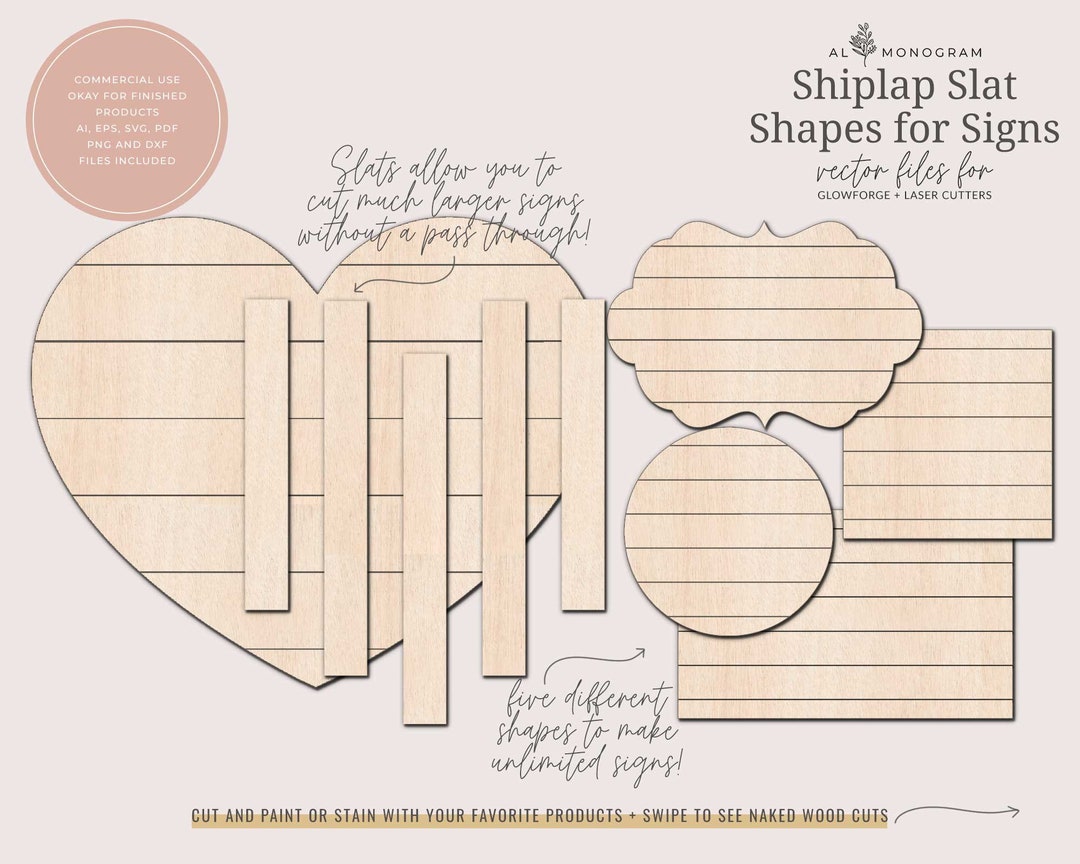 COMMERCIAL USE
OKAY FOR FINISHED
PRODUCTS
AI, EPS, SVG, PDF
PNG AND DXF
FILES INCLUDED
AL MONOGRAM
Shiplap Slat
Shapes for Signs
vector files for
GLOWFORGE + LASER CUTTERS
Slats allow you to
cut much larger signs
without a pass through!
five different
shapes to make
unlimited signs!
CUT AND PAINT OR STAIN WITH YOUR FAVORITE PRODUCTS + SWIPE TO SEE NAKED WOOD CUTS